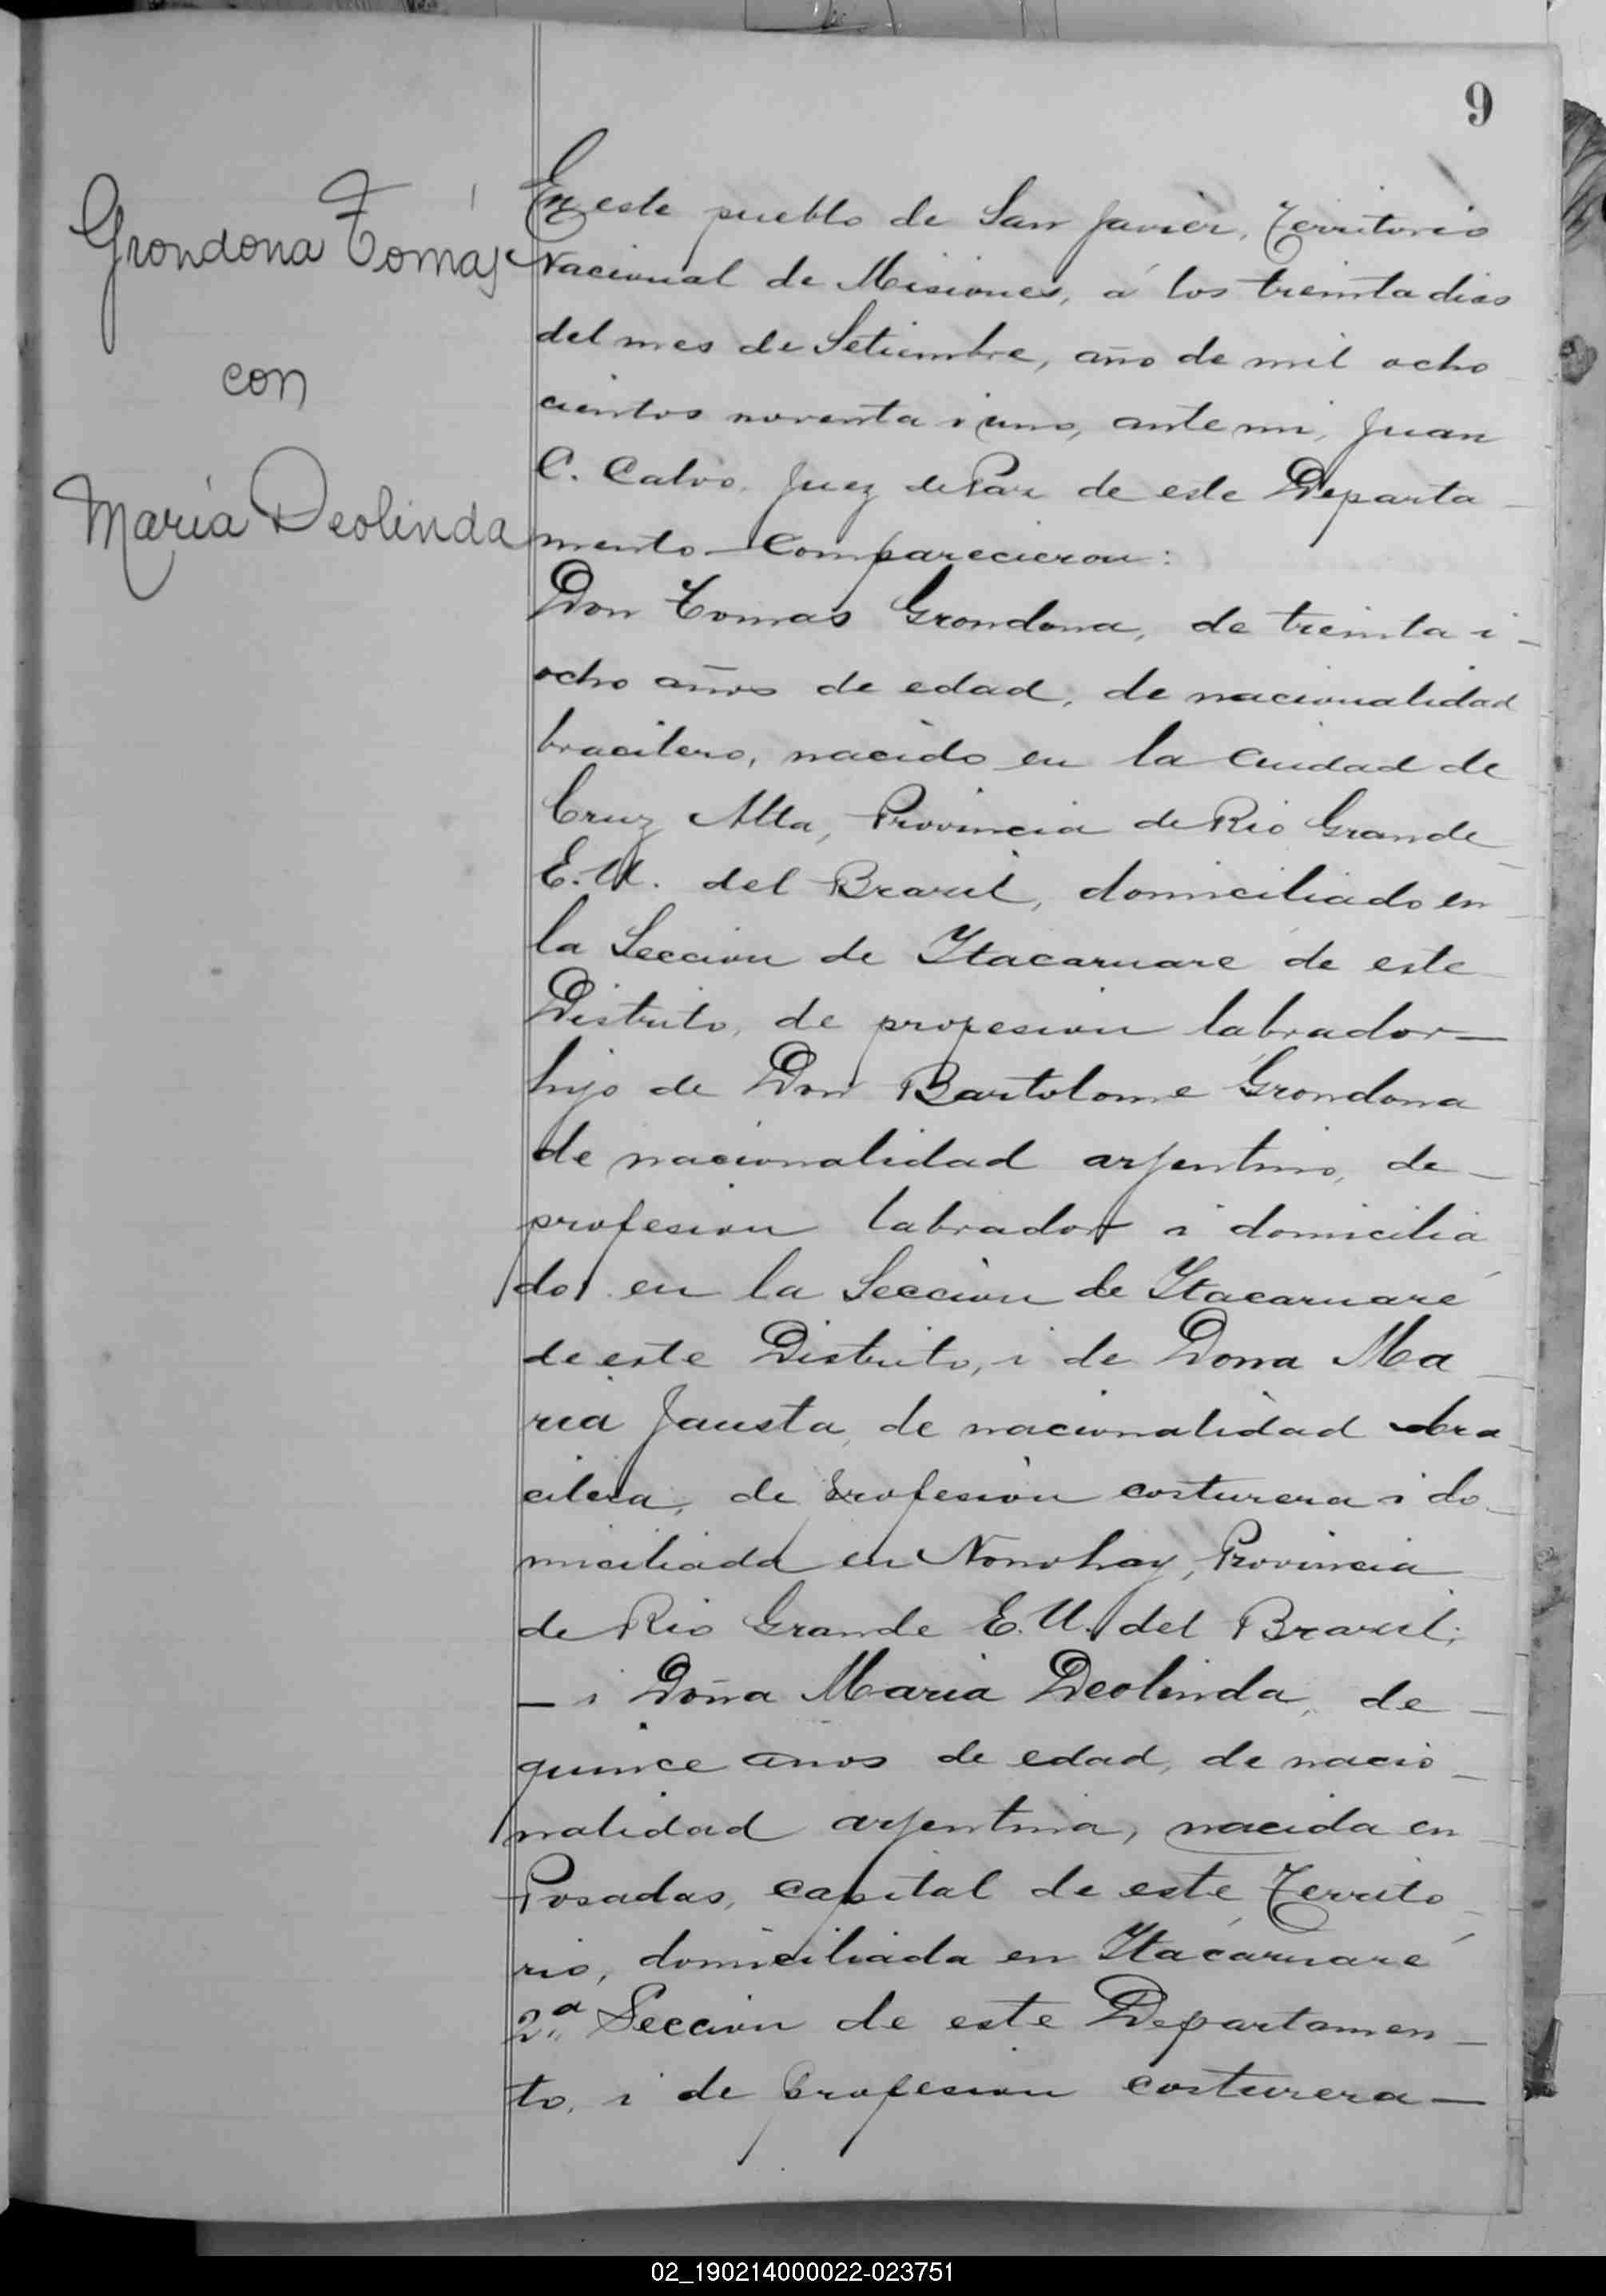 9
Grondona Tomás
con
María Deolinda
En este pueblo de San Javier, Territorio
Nacional de Misiones, á los treinta dias
del mes de Setiembre, año de mil ocho
cientos noventa i uno, ante mi, Juan
C. Calvo, Juez de Paz de este Departa
mento Comparecieron:
Don Tomas Grondona, de treinta i
ocho años de edad, de nacionalidad
bracilero, nacido en la Ciudad de
Cruz Alta, Provincia de Rio Grande
E.U. del Brazil, domiciliado en
la Seccion de Itacaruare de este
Distrito, de profesion labrador—
hijo de Don Bartolome Grondona
de nacionalidad arjentino, de
profesion labrador i domicilia
do en la Seccion de Itacaruaré
de este Distrito, i de Dona Ma
ria Fausta, de nacionalidad bra
cilera, de profesion costurera i do
miciliada en Nonohay, Provincia
de Rio Grande E.U. del Brazil;
— i Doña Maria Deolinda, de
quince años de edad, de nacio
nalidad arjentina, nacida en
Posadas, capital de este Territo
rio, domiciliada en Itacaruaré
2ª Seccion de este Departamen
to, i de profesion costurera—
02_190214000022-023751